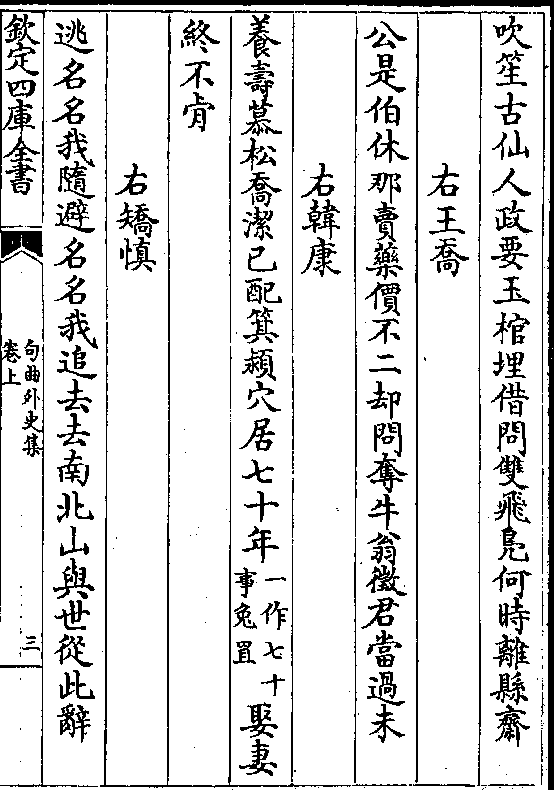 吹笙古仙人政要玉棺埋借問雙飛鳧何時離縣齋
右王喬
公是伯休那賣藥價不二却問奪牛翁徵君當過未
右韓康
養壽慕松喬潔已配箕潁穴居七十年一作七十事兔罝娶妻
終不肯
右矯慎
逃名名我隨避名名我追去去南北山與世從此辭
欽定四庫全書
句曲外史集
卷上
三